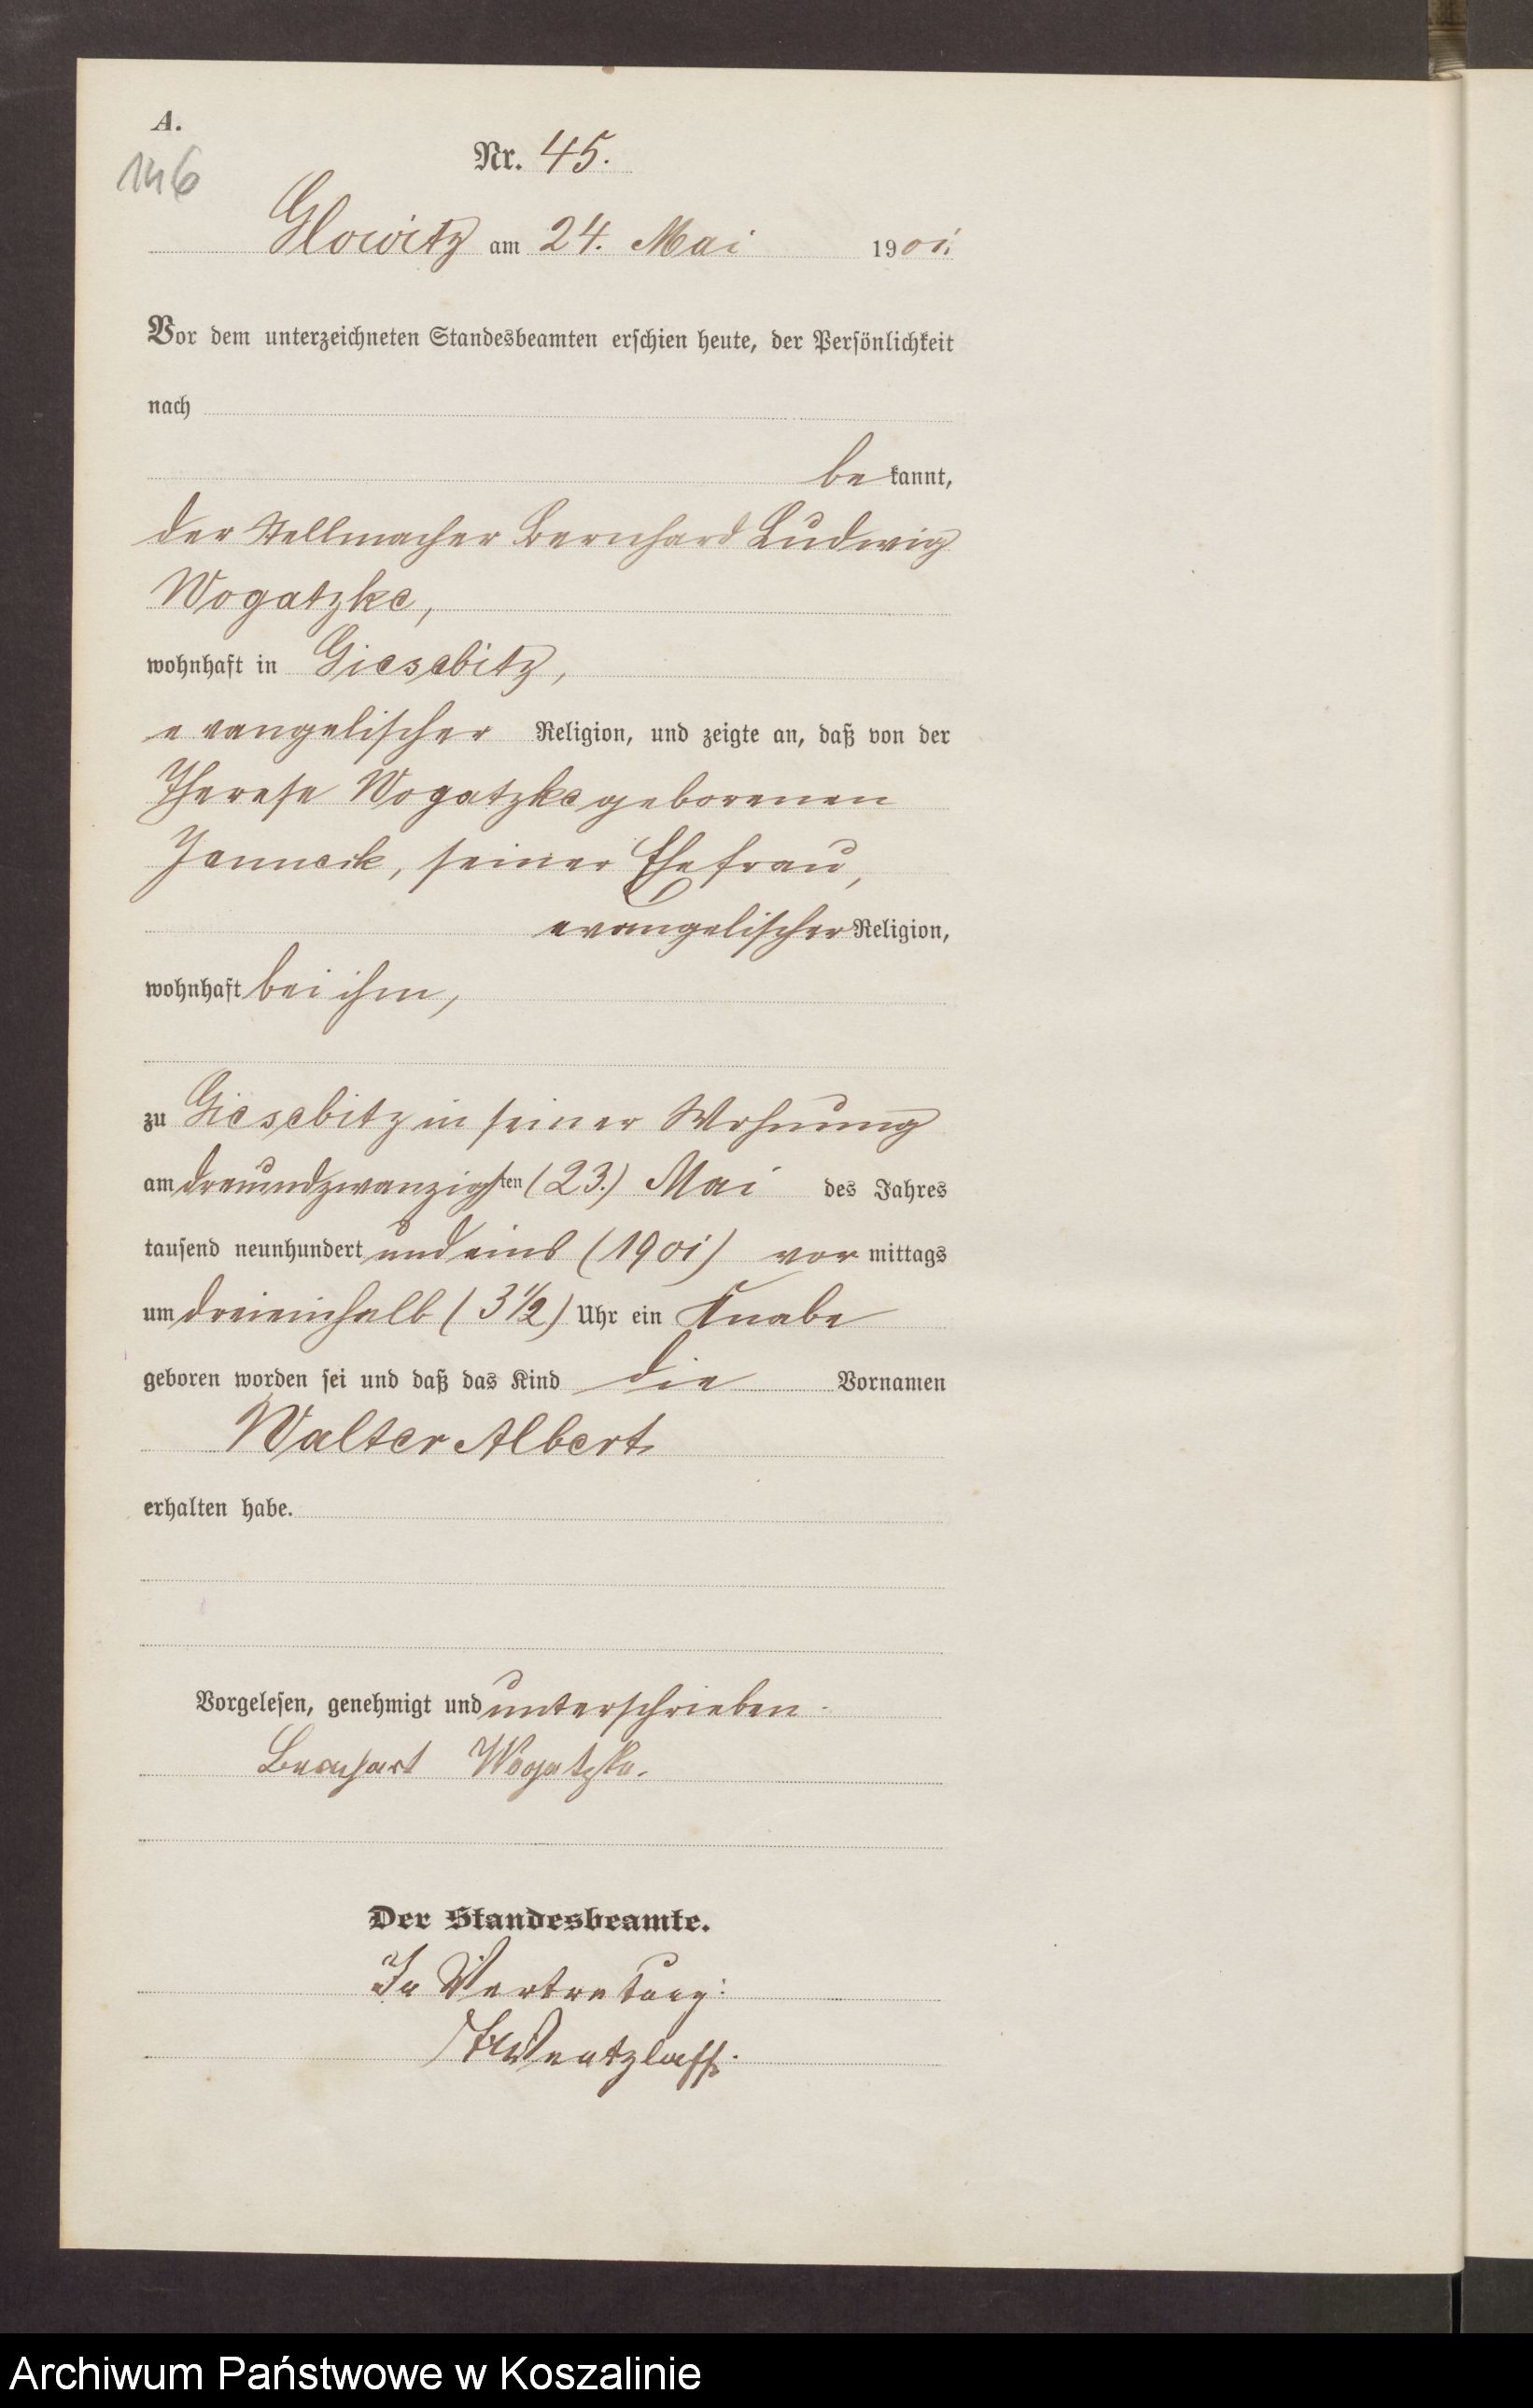 A.
146
Nr. 45.
Glowitz am 24. Mai 1901.
Vor dem unterzeichneten Standesbeamten erschien heute, der Persönlichkeit
nach
be kannt,
der Stellmacher Bernhard Ludwig
Wogatzke,
wohnhaft in Giesebitz,
evangelischer Religion, und zeigte an, daß von der
Therese Wogatzke geborenen
Janneck, seiner Ehefrau,
evangelischer Religion,
wohnhaft bei ihm,
zu Giesebitz in seiner Wohnung
am dreiundzwanzigsten (23.) Mai des Jahres
tausend neunhundert und eins (1901) vor mittags
um dreieinhalb (3 1/2) Uhr ein Knabe
geboren worden sei und daß das Kind die Vornamen
Walter Albert
erhalten habe.
Vorgelesen, genehmigt und unterschrieben.
Bernhart Wogatzke.
Der Standesbeamte.
In Vertretung:
Wentzlaff.
Archiwum Państwowe w Koszalinie